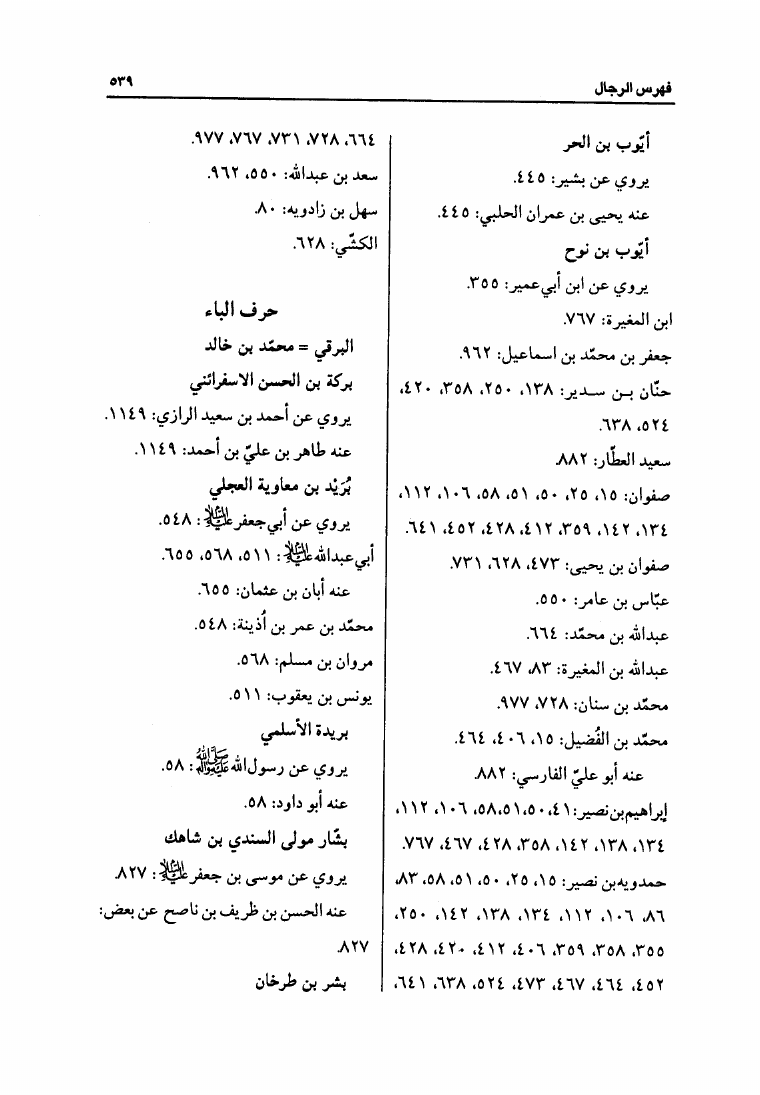 فهرس الرجال
٥٣٩
أيّوب بن الحر
يروي عن بشير: ٤٤٥.
عنه يحيى بن عمران الحلبي: ٤٤٥.
أيّوب بن نوح
يروي عن ابن أبي‌عمير: ٣٥٥.
ابن المغيرة: ٧٦٧.
جعفر بن محمّد بن اسماعيل: ٩٦٢.
حنّان بـن سـدير: ١٣٨، ٢٥٠، ٣٥٨، ٤٢٠،
٥٢٤، ٦٣٨.
سعيد العطّار: ٨٨٢.
صفوان: ١٥، ٢٥، ٥٠، ٥١، ٥٨، ١٠٦، ١١٢،
١٣٤، ١٤٢، ٣٥٩، ٤١٢، ٤٢٨، ٤٥٢، ٦٤١.
صفوان بن يحيى: ٤٧٣، ٦٢٨، ٧٣١.
عبّاس بن عامر: ٥٥٠.
عبدالله بن محمّد: ٦٦٤.
عبدالله بن المغيرة: ٨٣، ٤٦٧.
محمّد بن سنان: ٧٢٨، ٩٧٧.
محمّد بن الفُضيل: ١٥، ٤٠٦، ٤٦٤.
عنه أبو عليّ الفارسي: ٨٨٢.
إبراهيم‌بن‌نصير: ٤١، ٥٠، ٥١، ٥٨، ١٠٦، ١١٢،
١٣٤، ١٣٨، ١٤٢، ٣٥٨، ٤٢٨، ٤٦٧، ٧٦٧.
حمدويه‌بن نصير: ١٥، ٢٥، ٥٠، ٥١، ٥٨، ٨٣،
٨٦، ١٠٦، ١١٢، ١٣٤، ١٣٨، ١٤٢، ٢٥٠،
٣٥٥، ٣٥٨، ٣٥٩، ٤٠٦، ٤١٢، ٤٢٠، ٤٢٨،
٤٥٢، ٤٦٤، ٤٦٧، ٤٧٣، ٥٢٤، ٦٣٨، ٦٤١،
٦٦٤، ٧٢٨، ٧٣١، ٧٦٧، ٩٧٧.
سعد بن عبدالله: ٥٥٠، ٩٦٢.
سهل بن زادويه: ٨٠.
الكشّي: ٦٢٨.
حرف الباء
البرقي = محمّد بن خالد
بركة بن الحسن الاسفرائني
يروي عن أحمد بن سعيد الرازي: ١١٤٩.
عنه طاهر بن عليّ بن أحمد: ١١٤٩.
بُرَيْد بن معاوية العجلي
يروي عن أبي‌جعفر عليه السلام: ٥٤٨.
أبي‌عبدالله عليه السلام: ٥١١، ٥٦٨، ٦٥٥.
عنه أبان بن عثمان: ٦٥٥.
محمّد بن عمر بن أُذينة: ٥٤٨.
مروان بن مسلم: ٥٦٨.
يونس بن يعقوب: ٥١١.
بريدة الأسلمي
يروي عن رسول‌الله ﷺ: ٥٨.
عنه أبو داود: ٥٨.
بشّار مولى السندي بن شاهك
يروي عن موسى بن جعفر عليه السلام: ٨٢٧.
عنه الحسن بن ظريف بن ناصح عن بعض:
٨٢٧.
بشر بن طرخان